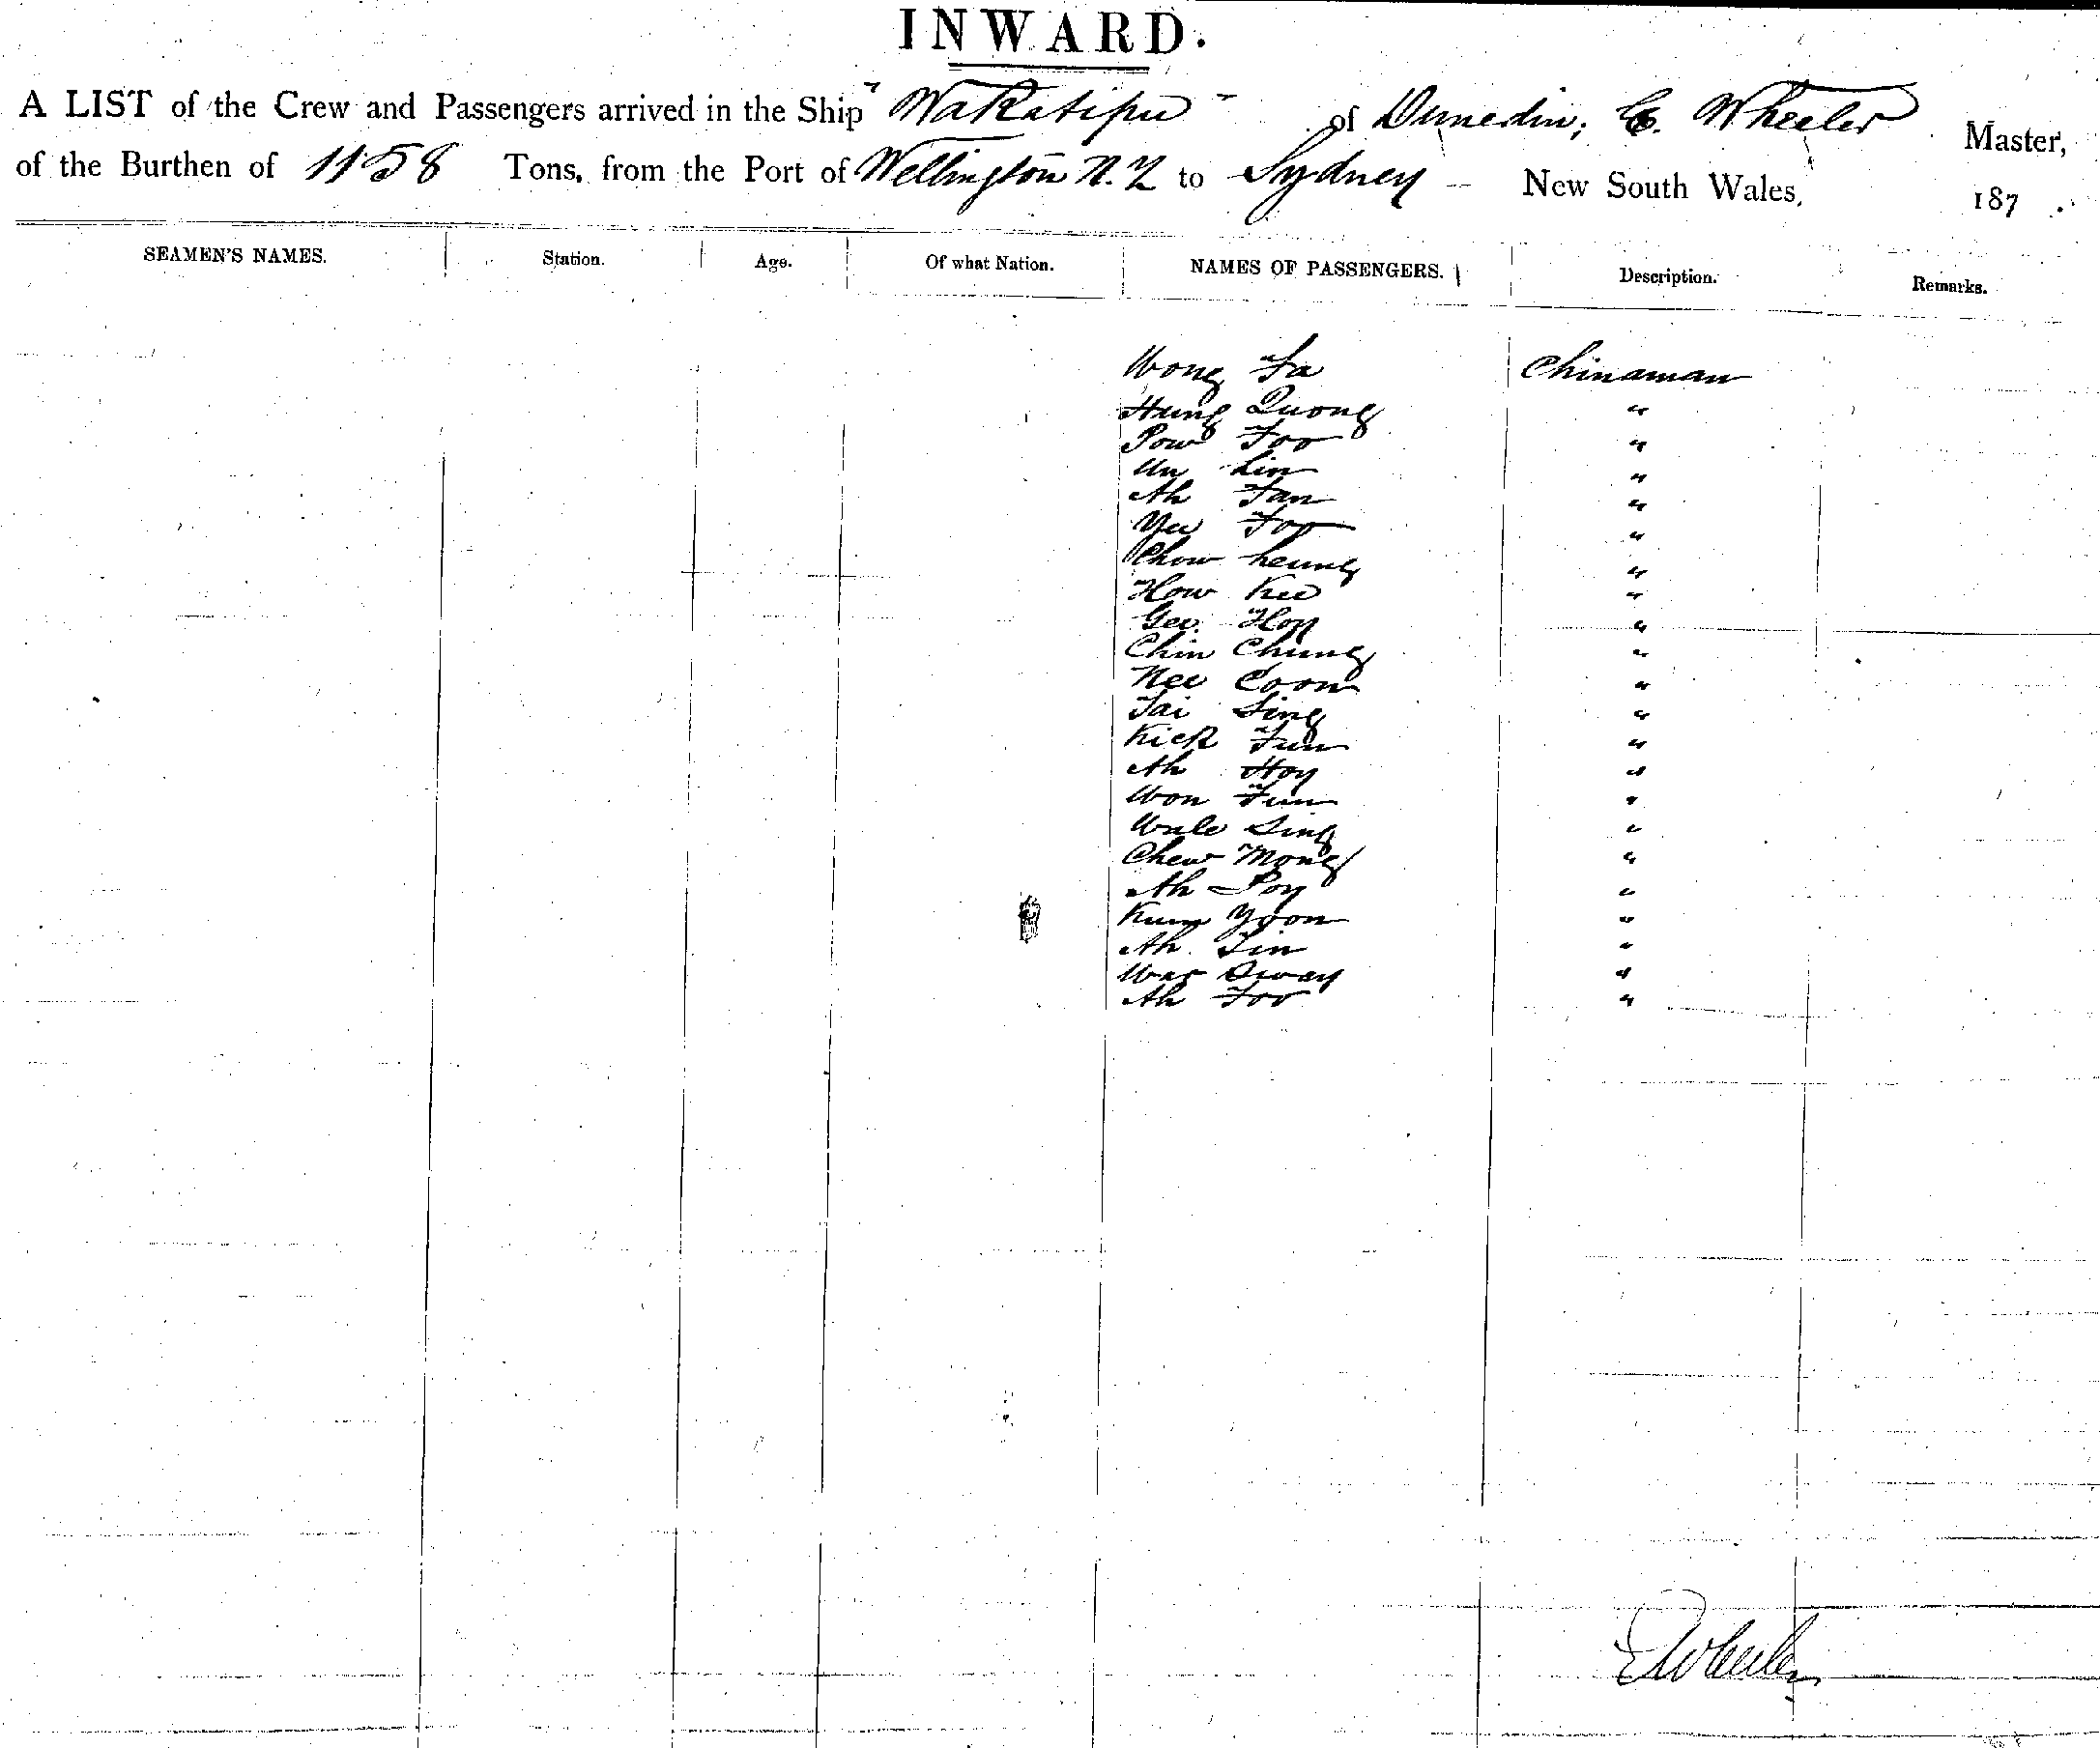 INWARD.
A LIST of the Crew and Passengers arrived in the Ship "Wakatipu" of Dunedin, E. Wheeler Master,
of the Burthen of 1158 Tons, from the Port of Wellington N.Z to Sydney New South Wales, 187 .
SEAMEN'S NAMES. Station. Age. Of what Nation. NAMES OF PASSENGERS. Description. Remarks.
Wong Fa Chinaman
Hung Quong "
Pow Foo "
Un Lin "
Ah Fan "
Yee Foo "
Chow Leung "
How Kee "
Geo. Hop "
Chin Chung "
Nee Coon "
Tai Sing "
Kick Fun "
Ah Hoy "
Won Fun "
Sing "
Chew Mong "
Ah Poy "
Kum Yoon "
Ah Tin "
War Sway "
Ah Foo "
E Wheeler